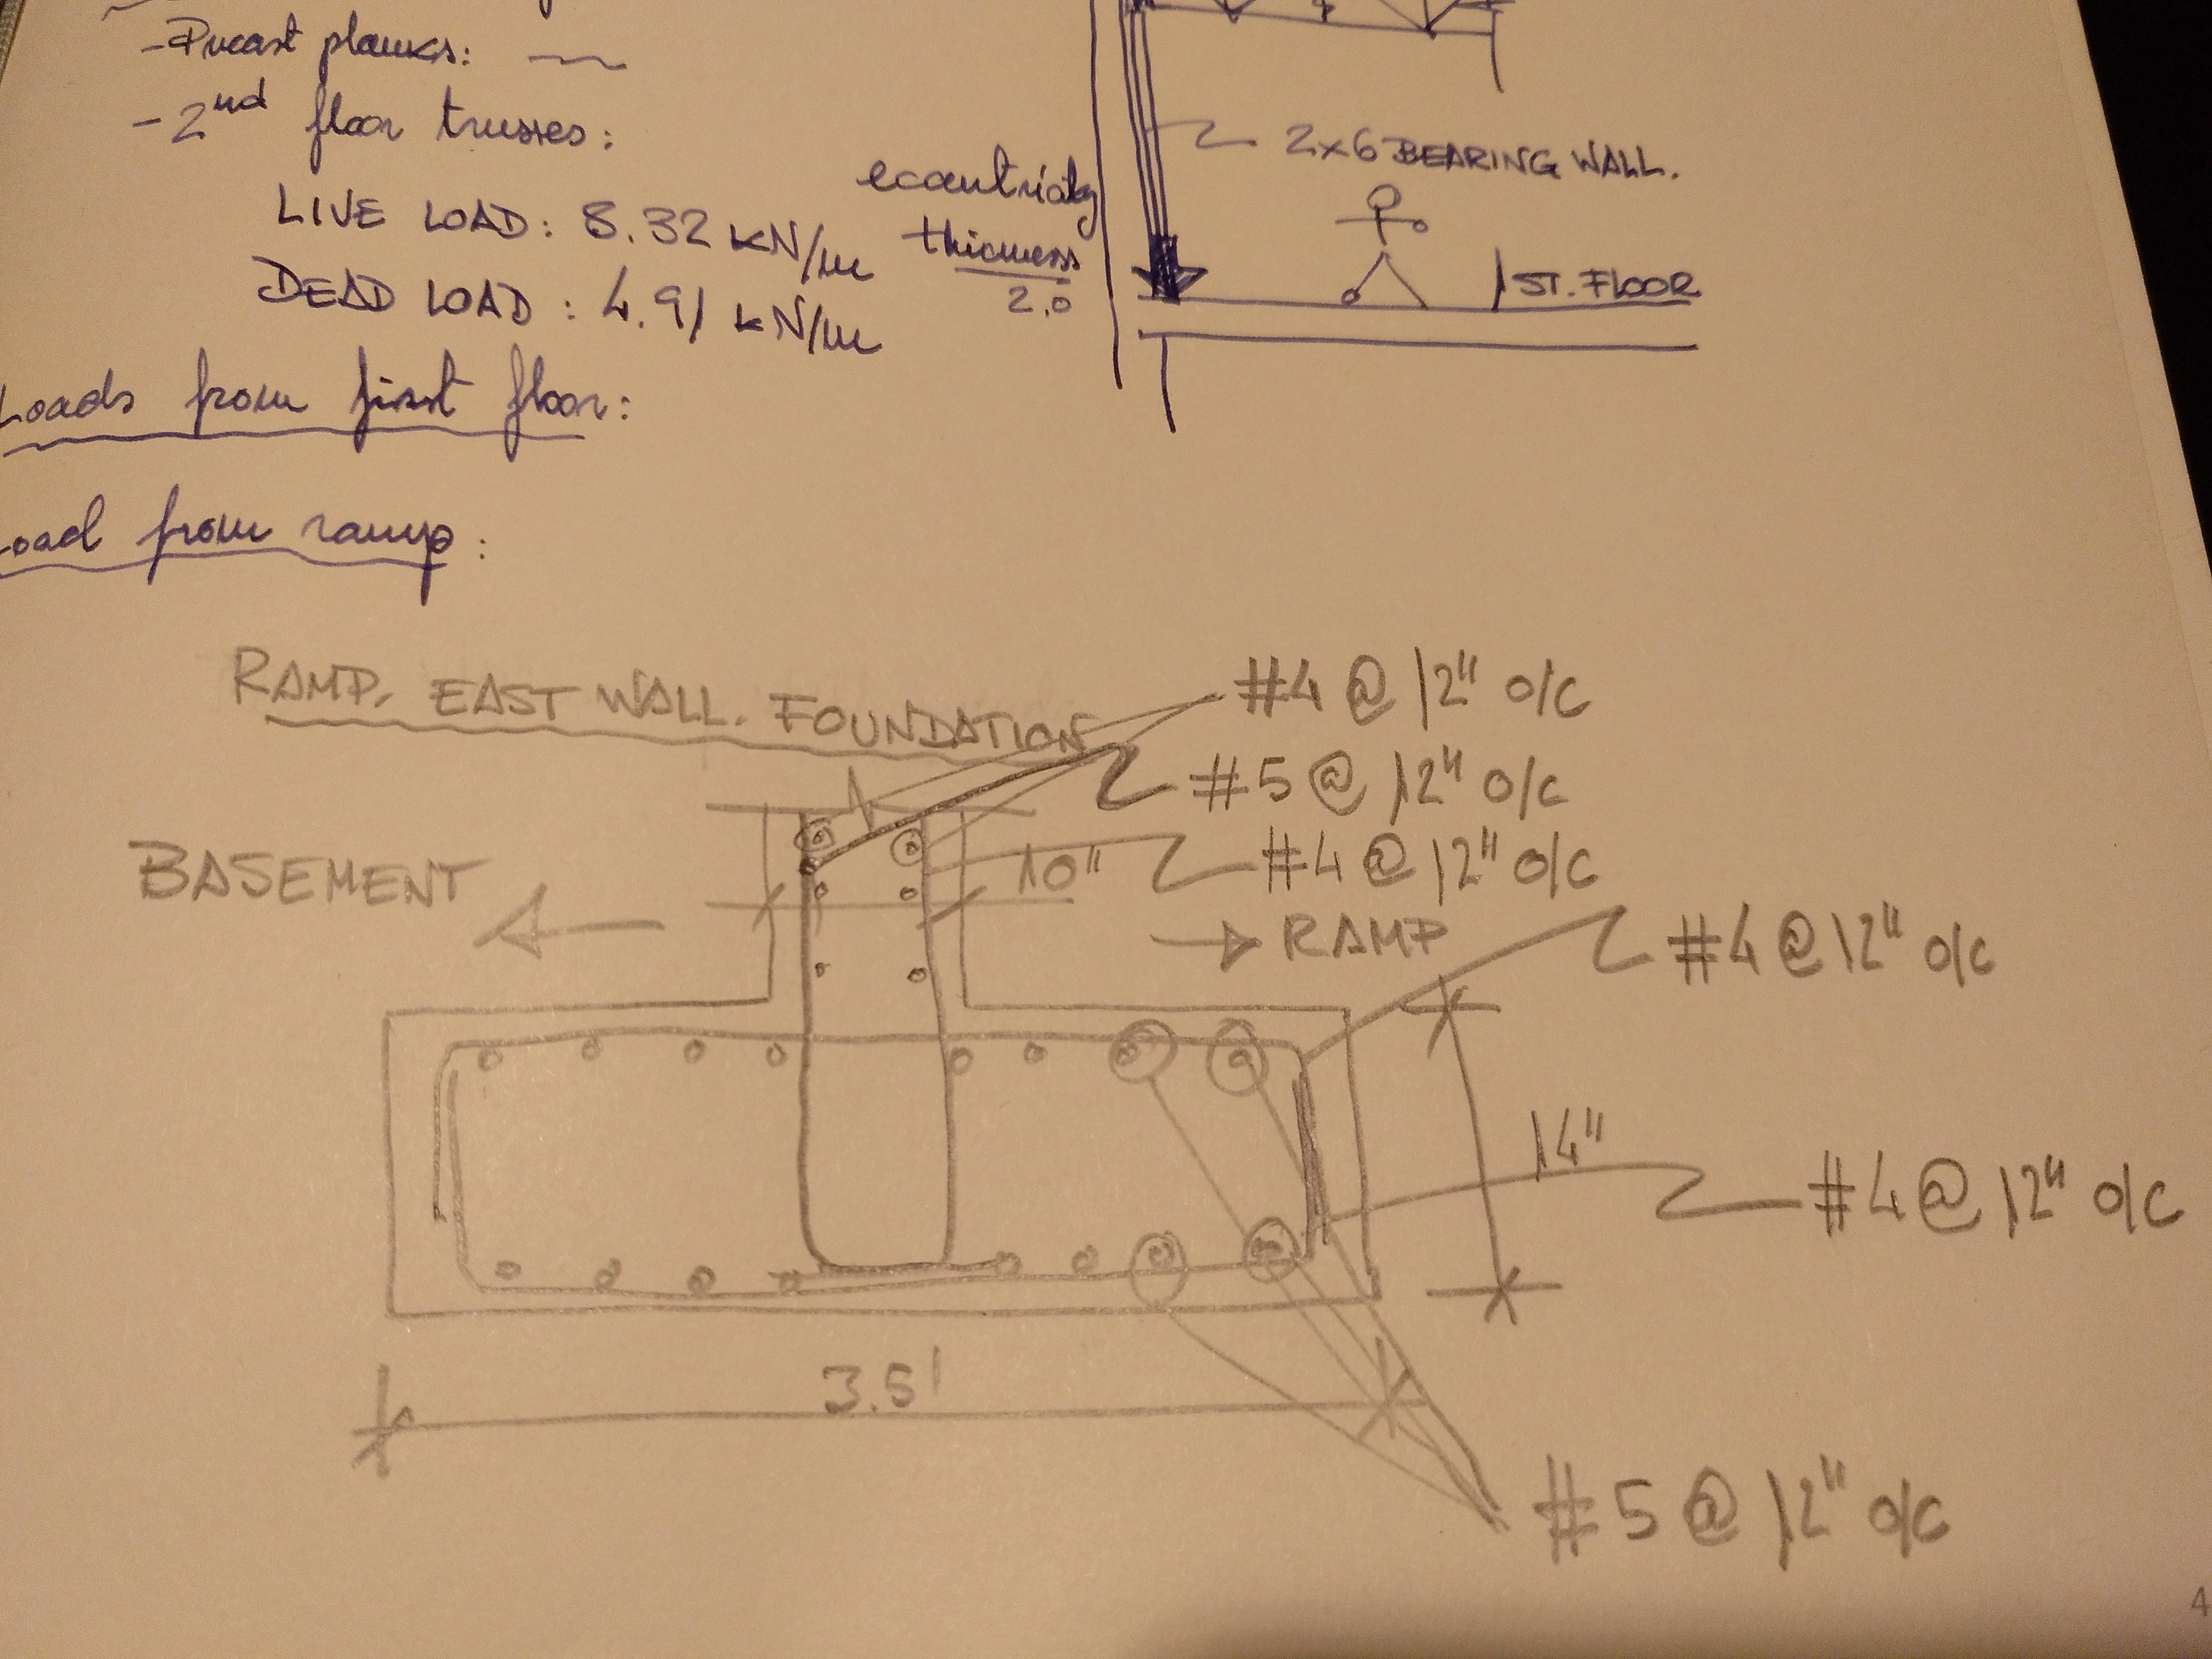 -Precast planks:
-2nd floor trusses:
LIVE LOAD: 8.32 kN/m
DEAD LOAD: 4.91 kN/m
eccentricity
thickness
2.0
2x6 BEARING WALL.
1ST. FLOOR
Loads from first floor:
Load from ramp:
RAMP. EAST WALL. FOUNDATION
#4 @ 12" O/C
#5 @ 12" O/C
10"
#4 @ 12" O/C
BASEMENT
RAMP
#4 @ 12" O/C
14"
#4 @ 12" O/C
3.5'
#5 @ 12" O/C
4